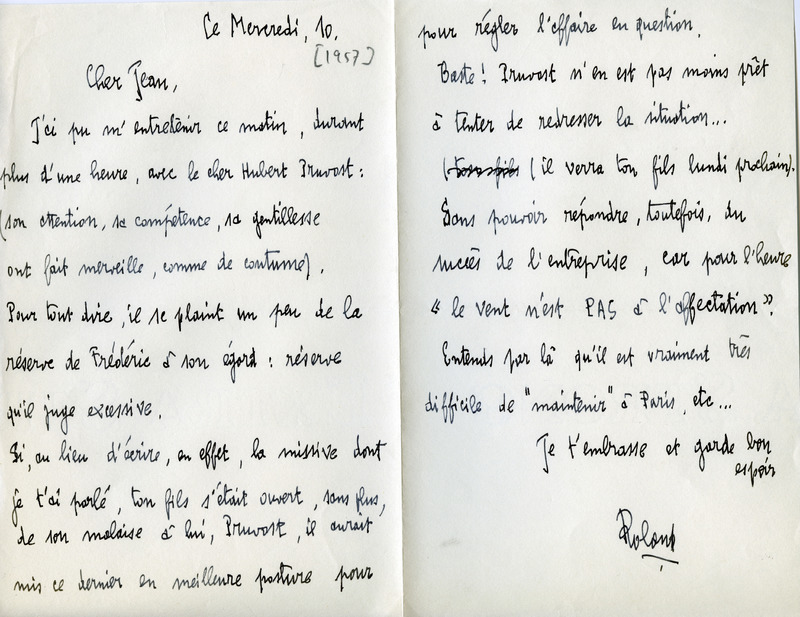 Ce Mercredi, 10.
[1957]
Cher Jean,
J'ai pu m'entretenir ce matin, durant
plus d'une heure, avec le cher Hubert Pruvost :
(son attention, sa compétence, sa gentillesse
ont fait merveille, comme de coutume).
Pour tout dire, il se plaint un peu de la
réserve de Frédéric à son égard : réserve
qu'il juge excessive.
Si, au lieu d'écrire, en effet, la missive dont
je t'ai parlé, ton fils s'était ouvert, sans plus,
de son malaise à lui, Pruvost, il aurait
mis ce dernier en meilleure posture pour
pour régler l'affaire en question.
Baste ! Pruvost n'en est pas moins prêt
à tenter de redresser la situation...
( (il verra ton fils lundi prochain).
Sans pouvoir répondre, toutefois, du
succès de l'entreprise, car pour l'heure
« le vent n'est PAS à l'affectation ».
Entends par là qu'il est vraiment très
difficile de "maintenir" à Paris, etc...
Je t'embrasse et garde bon
espoir
Roland